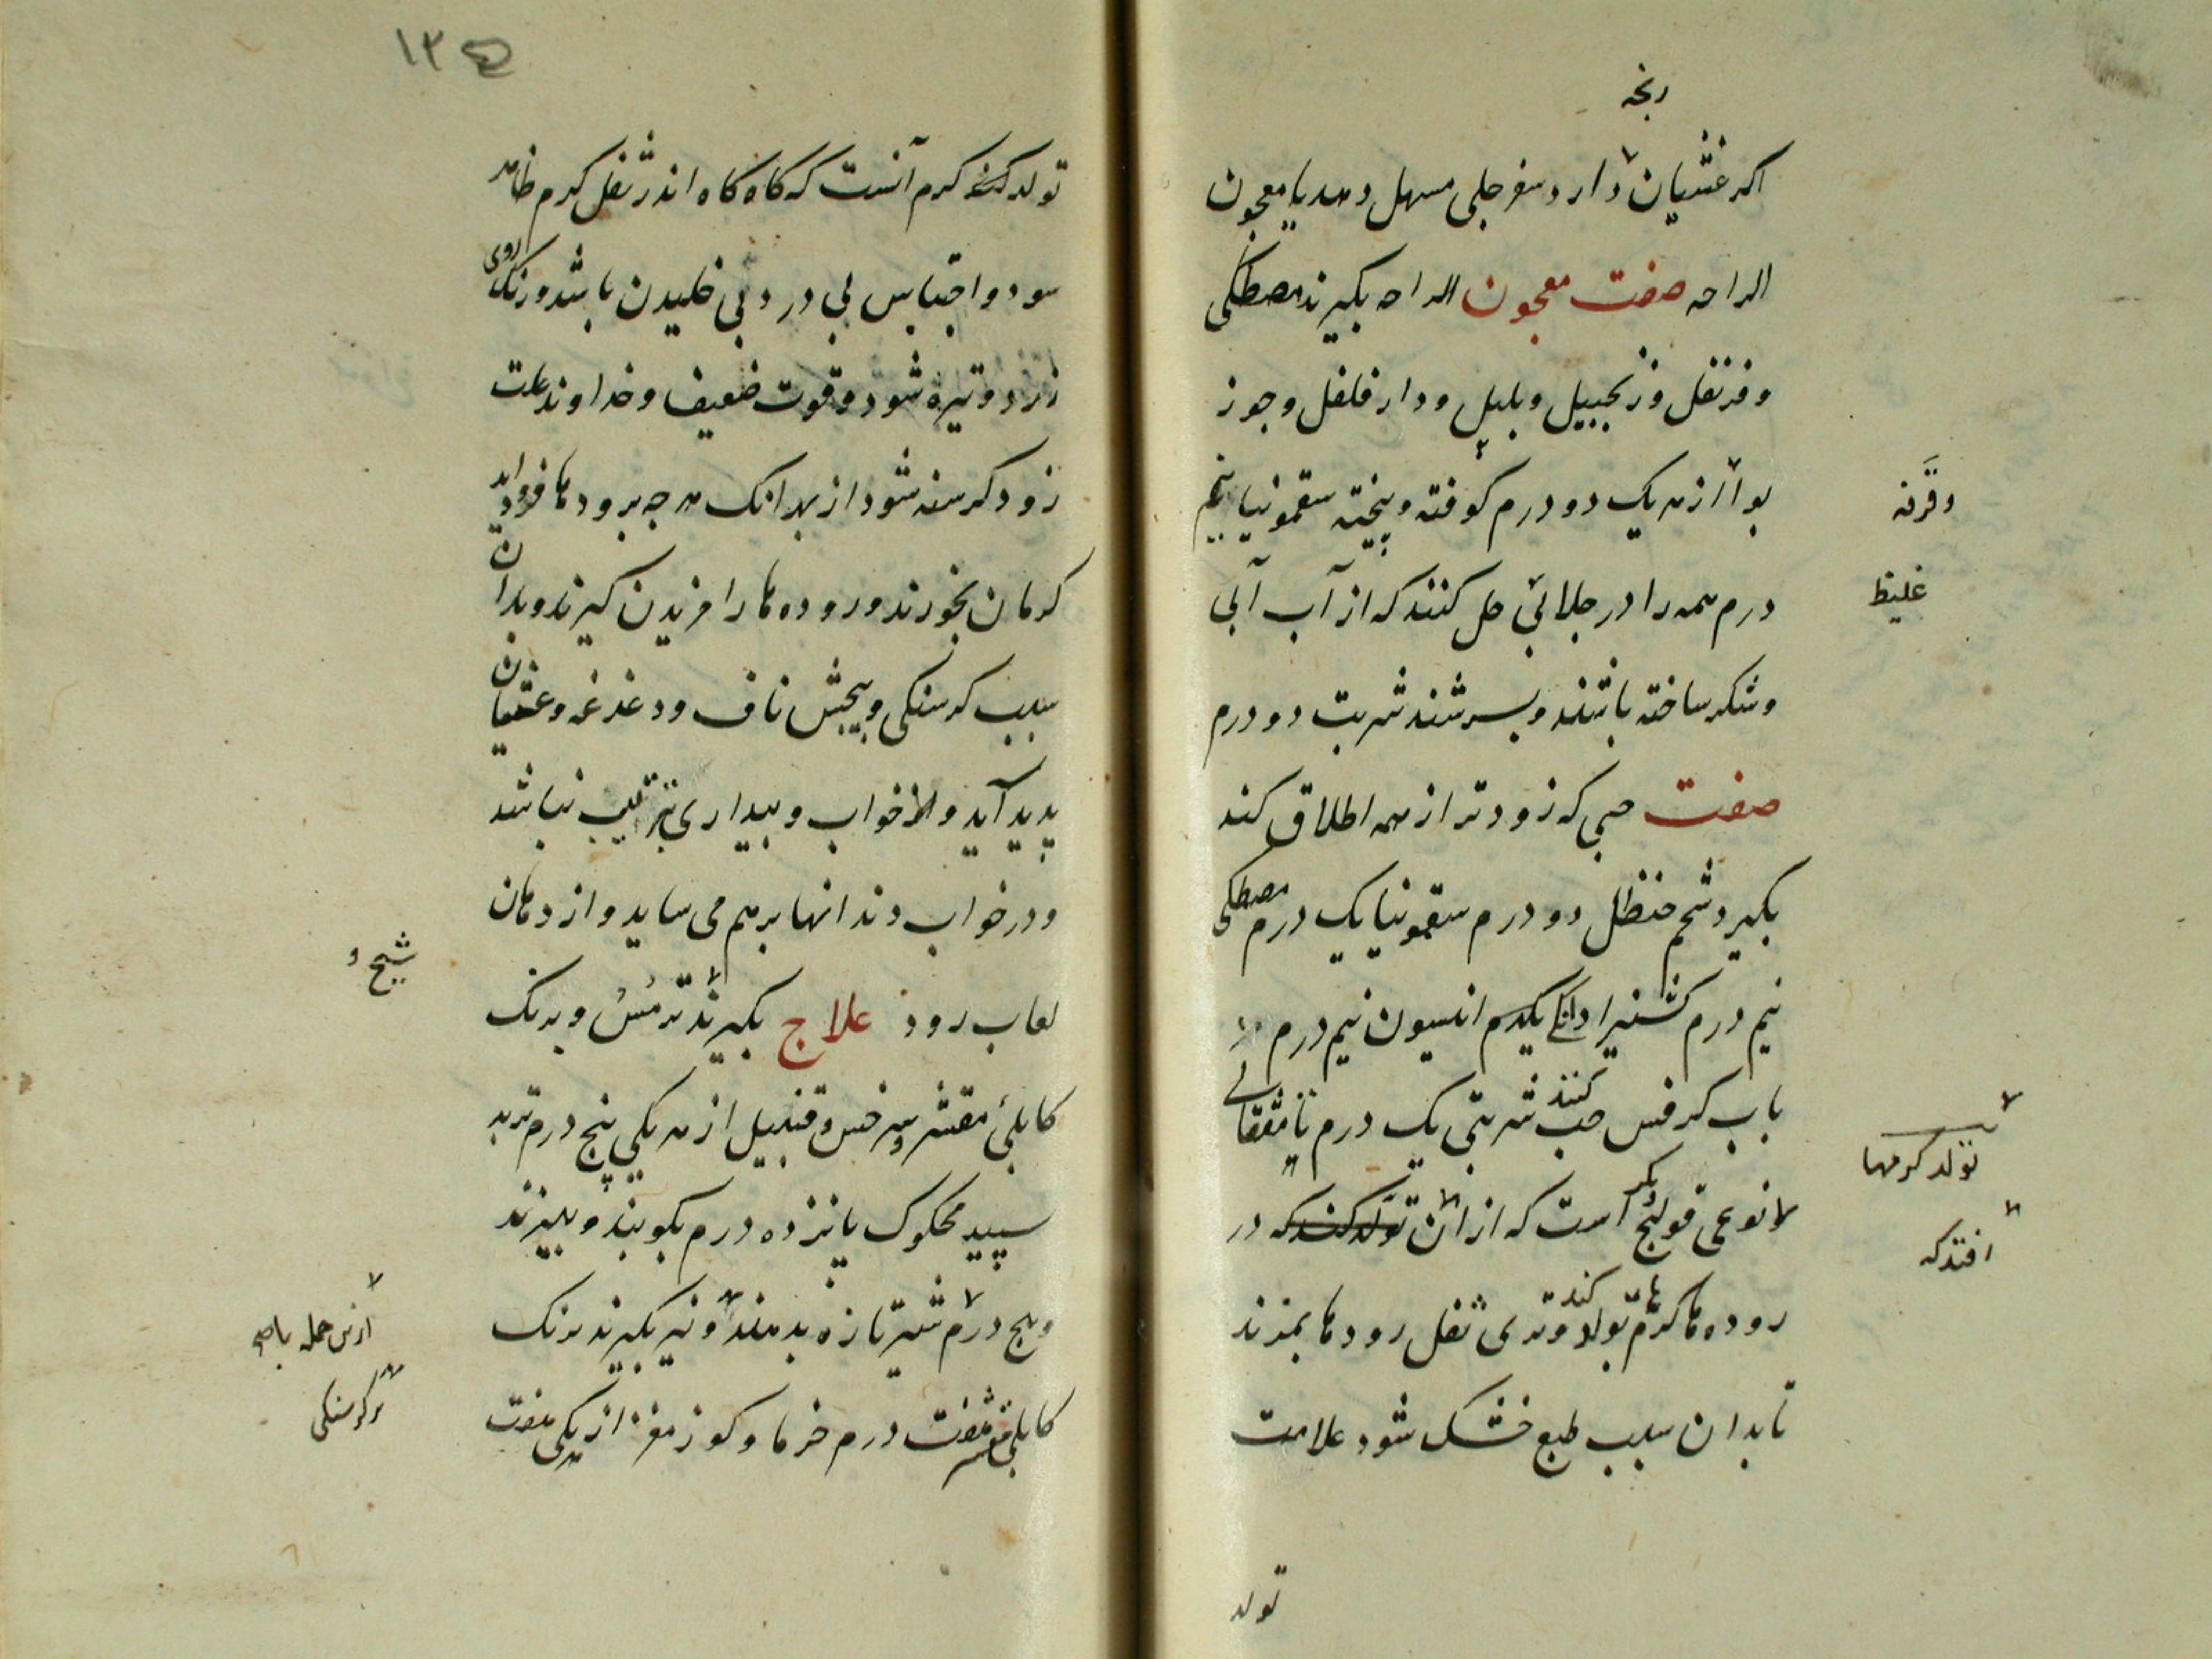 رنجه
اکر غثیان دارد سفرجلی مسهل دهد یا معجون
الراحه صفت معجون الراحه بکیرند مصطکی
و قرنفل و زنجبیل و بلیل و دار فلفل و جوز
بوا از هر یک دو درم کوفته و بیخته سقمونیا پنجم
وقرفه
درم همه را در جلابی حل کنند که از آب آبی
غلیظ
و شکر ساخته باشند و بسرشند شربت دو درم
صفت حبی که زودتر از همه اطلاق کند
بکیرد شحم حنظل دو درم سقمونیا یک درم مصطکی
نیم درم کثیرا دانکی یکدرم انیسون نیم درم
باب کرفس حب کنند شربتی یک درم تا مثقالی
تولد کرمها
نوعی قولنج دیکر است که از ان تولد کند که در
افتد که
روده ها کرم ها تولد کند و تری ثفل رودها بمزند
تا بدان سبب طبع خشک شود علامت
تولد
۱۳۵
تولد کند کرم آنست که کاه کاه اندر ثفل کرم ظاهر
سود و احتباس بی درد و بی خلیدن باشد و رنک روی
زرد و تیره شود و قوت ضعیف و خداوند علت
زود کرسنه شود از بهر انک هر چه برودها فرود اید
کرمان بخورند و روده ها را مزیدن کیرند و بدان
سبب کرسنکی و پیچش ناف و دغدغه و غثیان
پدید آید و خواب و بیداری بترتیب نباشد
و در خواب دندانها برهم می ساید و از دهان
لعاب رود علاج بکیرند ترمس و برنک
شیح و
کابلی مقشر و سرخس و قنبیل از هر یکی پنج درم تربد
سپید محکوک پانزده درم بکوبند و ببیزند
و پنج درم شیر تازه بدهند و نیز بکیرند برنک
ازین جمله با
بر کرسنکی
کابلی مقشر هفت درم خرما و کوز مغز از هر یکی هفت